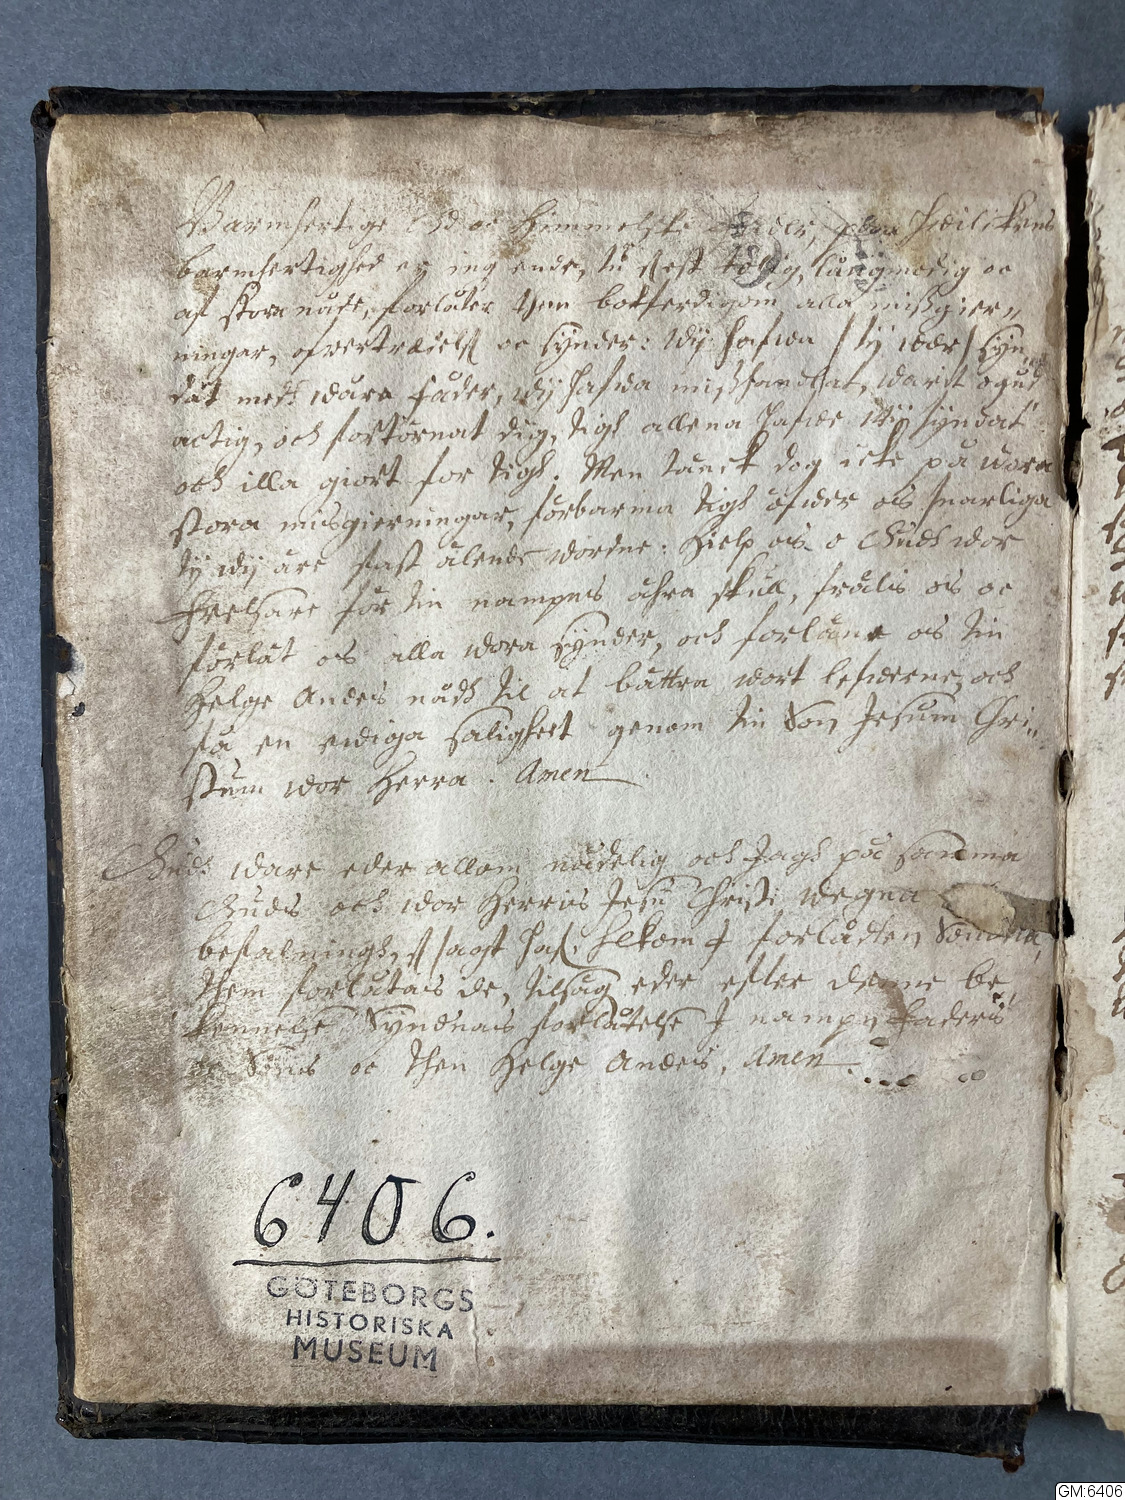 Barmhertige Gud oc Himmelske Fader, hwilckens
barmhertighed er ing ende, tu äst tolig, långmodig oc
af stora nåde, forlåter then botferdigom alla missgier„
ningar, ofvertrædelse oc synder: Wij hafwa / ty wær / syn„
dat medh wåra fäder, wij hafwa misshandlat, warit ogud
actig, och förtörnat dig, tigh allena hafwe wij syndat
och illa giort for tigh. Men tänck dog icke på wåra
stora misgierningar, förbarma tigh öfwer ois snarliga
ty wij äre fast älende wordne: Hielp ois o Gudh wor
Frelsare för tin nampns ähra skull, frälis ois oc
förlåt ois alla wora synder, och forläne ois tin
Helge Andes nådh til at bättra wort lefwerne, och
få en ewiga salighet genom tin Son Jesum Chri„
stum wor Herra. Amen
Gudh ware eder allom nådelig och Jagh på samma
Guds och wor Herris Jesu Christi wegna
befalningh, sagt haf. hwlkom I forlåten Synderna,
them forlåtas de, tilsäg eder efter denne be„
kennelse Syndnas forlåtelse I nampn Faders
oc Sons oc then Helge Andes, Amen
6406.
GÖTEBORGS
HISTORISKA
MUSEUM
GM:6406